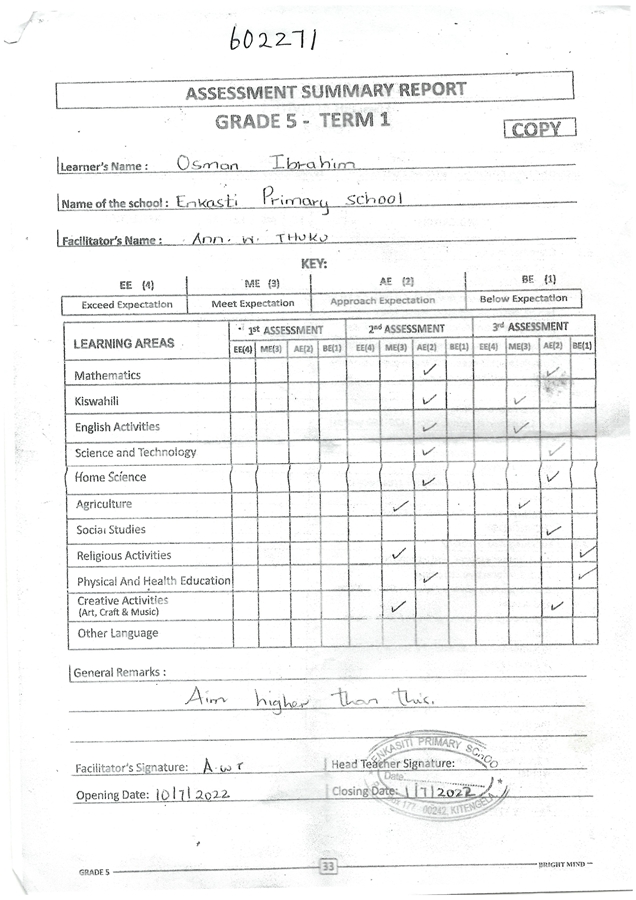 602271
ASSESSMENT SUMMARY REPORT
GRADE 5 - TERM 1
COPY
Learner's Name : Osman Ibrahim
Name of the school : Enkasti Primary School
Facilitator's Name : Ann. W. THUKU
KEY:
EE (4) ME (3) AE (2) BE (1)
Exceed Expectation Meet Expectation Approach Expectation Below Expectation
LEARNING AREAS 1st ASSESSMENT 2nd ASSESSMENT 3rd ASSESSMENT
EE(4) ME(3) AE(2) BE(1) EE(4) ME(3) AE(2) BE(1) EE(4) ME(3) AE(2) BE(1)
Mathematics ✓ ✓
Kiswahili ✓ ✓
English Activities ✓ ✓
Science and Technology ✓ ✓
Home Science ✓ ✓
Agriculture ✓ ✓
Social Studies ✓
Religious Activities ✓ ✓
Physical And Health Education ✓ ✓
Creative Activities ✓ ✓
(Art, Craft & Music)
Other Language
General Remarks :
Aim higher than this.
ENKASITI PRIMARY SCHOO
Facilitator's Signature: A.w.T Head Teacher Signature:
Date
Opening Date: 10/7/2022 Closing Date: 1/7/2022
177 00242, KITENGELA
GRADE 5 33 BRIGHT MIND